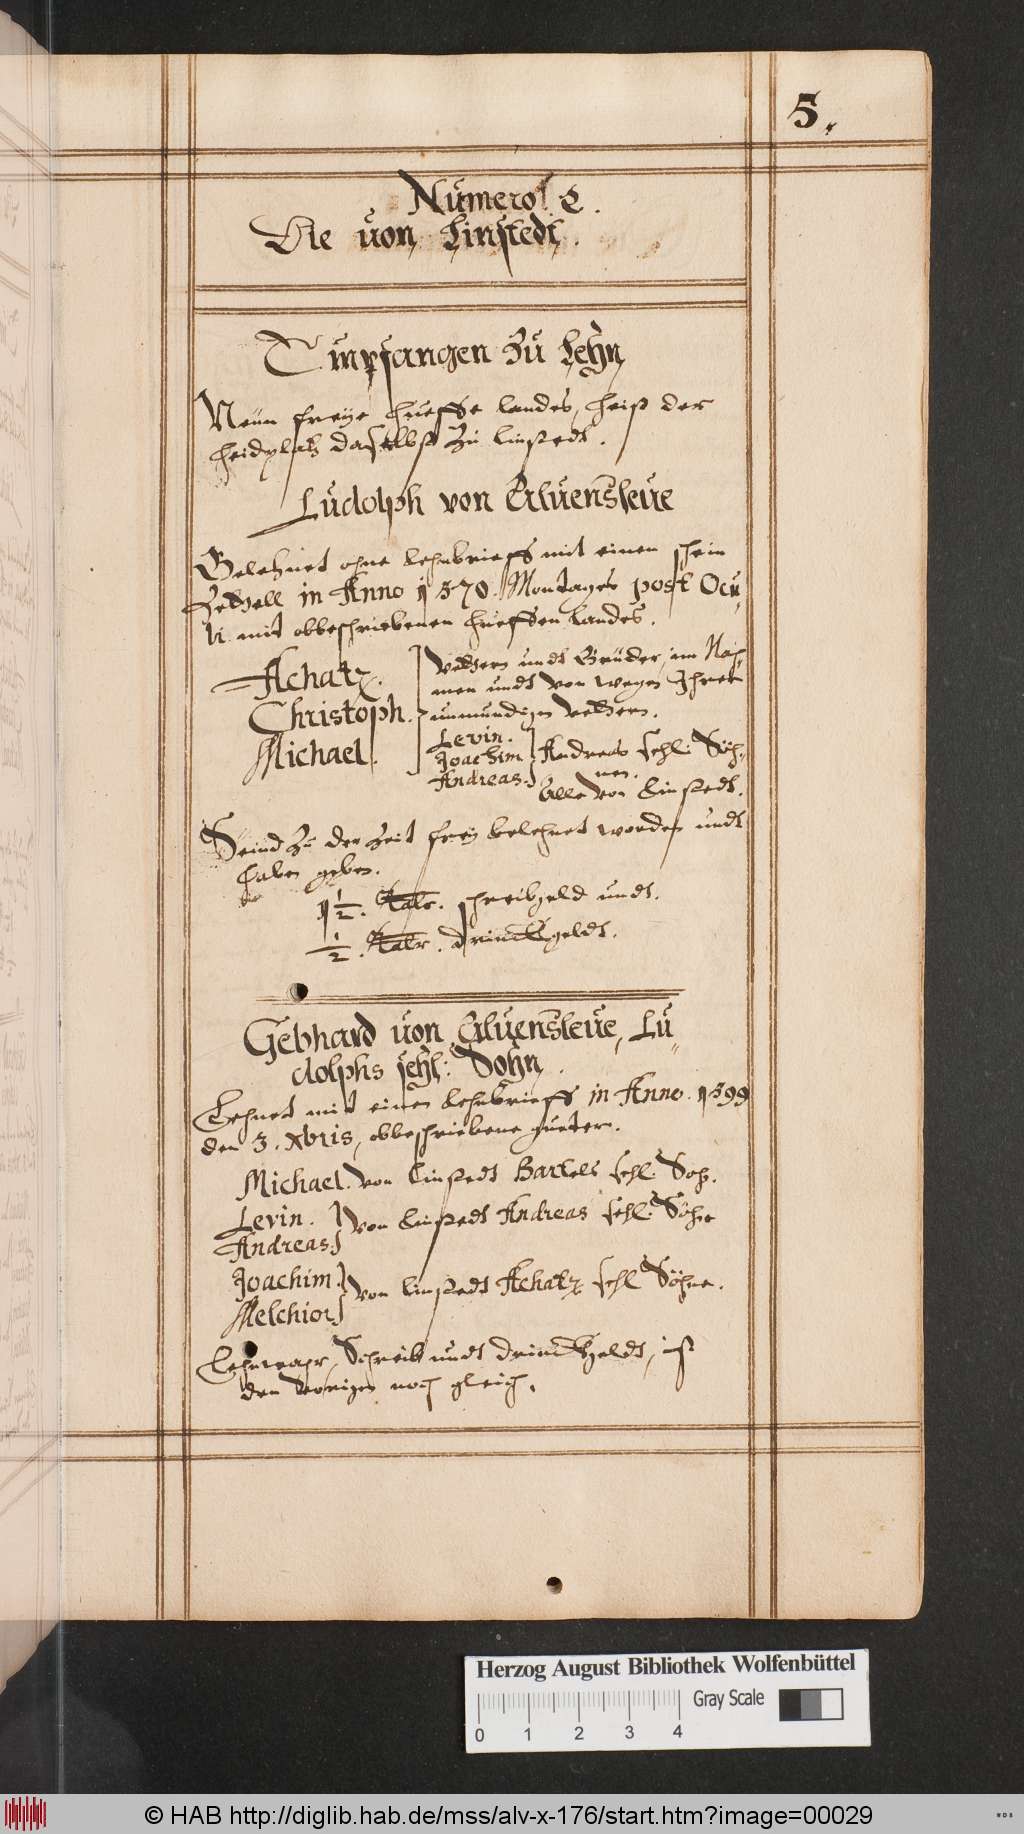 5.
Numero! 2.
Die von Linstedt.
Empfangen Zu Lehn
Neün freye hueffe landes, heist der
heidplatz daselbst Zu linstedt.
Ludolph von Alvensleve
Belehnet ohne lehnbrieff mit einen schein
Zettell in Anno 1570. Montages post Ocu„
li mit obbeschriebenen hueffen landes.
Achatz.
Christoph.
Michael.
Vettern undt Brüder, im Nah„
men undt von wegen Ihrer
unmundigen Vettern.
Levin.
Joachim
Andreas.
Andreas sehl: Söh„
nen.
Alle von Linstedt.
Seind Zu der Zeit frey belehnet worden undt
haben geben.
1 1/2. Talr. schreibgeld undt.
1/2. Talr. drinckgeldt.
Gebhard von Alvensleve, Lu„
dolphs sehl: Sohn.
Lehnet mit einen lehnbrieff in Anno. 1599
den 3. Xbris, obbeschriebene gueter.
Michael. von Linstedt Bartels sehl: Soh.
Levin.
Andreas.
von Linstedt Andreas sehl: Söhne
Joachim.
Melchior
von linstedt Achatz sehl Söhne.
Lehnwahr, Schreib undt drinckgeldt, ist
den Vorigen noch gleich.
Herzog August Bibliothek Wolfenbüttel
0 1 2 3 4
Gray Scale
© HAB http://diglib.hab.de/mss/alv-x-176/start.htm?image=00029